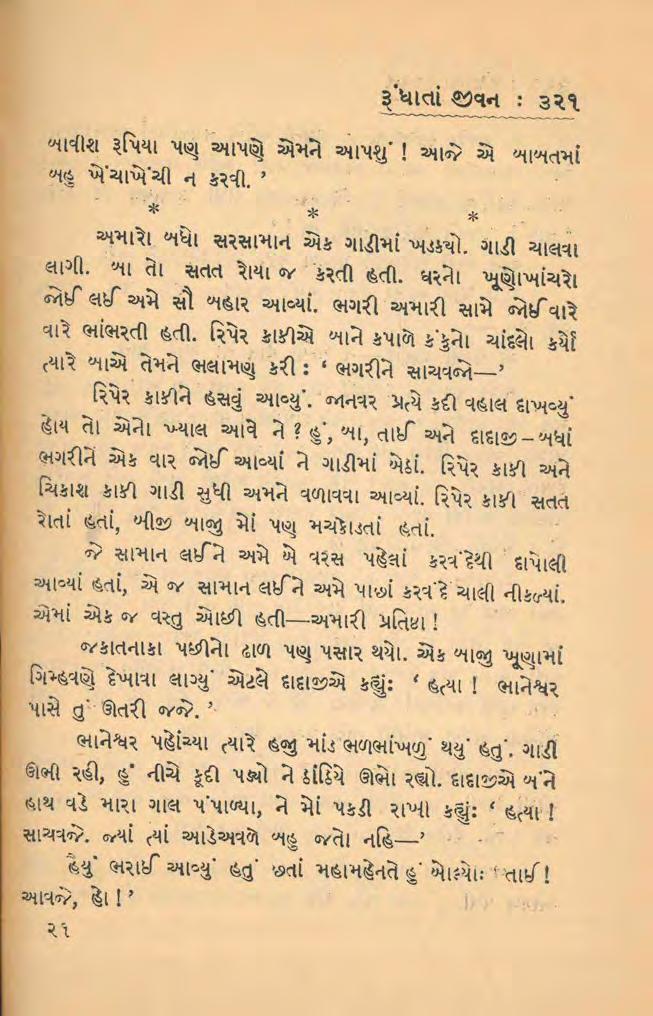 રૂંધાતાં જીવન : ૩૨૧
બાવીશ રૂપિયા પણ આપણે એમને આપશું ! આજે એ બાબતમાં
બહુ ખેંચાખેંચી ન કરવી. ’
* * *
અમારો બધો સરસામાન એક ગાડીમાં ખડક્યો. ગાડી ચાલવા
લાગી. બા તો સતત રોયા જ કરતી હતી. ઘરનો ખૂણોખાંચરો
જોઈ લઈ અમે સૌ બહાર આવ્યાં. ભગરી અમારી સામે જોઈ વારે
વારે ભાંભરતી હતી. રિપેર કાકીએ બાને કપાળે કંકુનો ચાંદલો કર્યો
ત્યારે બાએ તેમને ભલામણ કરી : ‘ ભગરીને સાચવજો—’
રિપેર કાકીને હસવું આવ્યું. જાનવર પ્રત્યે કદી વહાલ દાખવ્યું
હોય તો એનો ખ્યાલ આવે ને ? હું, બા, તાઈ અને દાદાજી – બધાં
ભગરીને એક વાર જોઈ આવ્યાં ને ગાડીમાં બેઠાં. રિપેર કાકી અને
ચિકાશ કાકી ગાડી સુધી અમને વળાવવા આવ્યાં. રિપેર કાકી સતત
રોતાં હતાં, બીજી બાજુ મોં પણ મચકોડતાં હતાં.
જે સામાન લઈને અમે બે વરસ પહેલાં કરવંદેથી દાપોલી
આવ્યાં હતાં, એ જ સામાન લઈને અમે પાછાં કરવંદે ચાલી નીકળ્યાં.
એમાં એક જ વસ્તુ ઓછી હતી—અમારી પ્રતિષ્ઠા !
જકાતનાકા પછીનો ઢાળ પણ પસાર થયો. એક બાજુ ખૂણામાં
ગિમ્હવણે દેખાવા લાગ્યું એટલે દાદાજીએ કહ્યું: ‘ હત્યા ! ભાનેશ્વર
પાસે તું ઊતરી જજે. ’
ભાનેશ્વર પહોંચ્યા ત્યારે હજી માંડ ભળભાંખળું થયું હતું. ગાડી
ઊભી રહી, હું નીચે કૂદી પડ્યો ને ઠાંઠિયે ઊભો રહ્યો. દાદાજીએ બંને
હાથ વડે મારા ગાલ પંપાળ્યા, ને મોં પકડી રાખી કહ્યું: ‘ હત્યા !
સાચવજે. જ્યાં ત્યાં આડેઅવળે બહુ જતો નહિ—’
હૈયું ભરાઈ આવ્યું હતું છતાં મહામહેનતે હું બોલ્યો: ‘ તાઈ !
આવજે, હો ! ’
૨૧